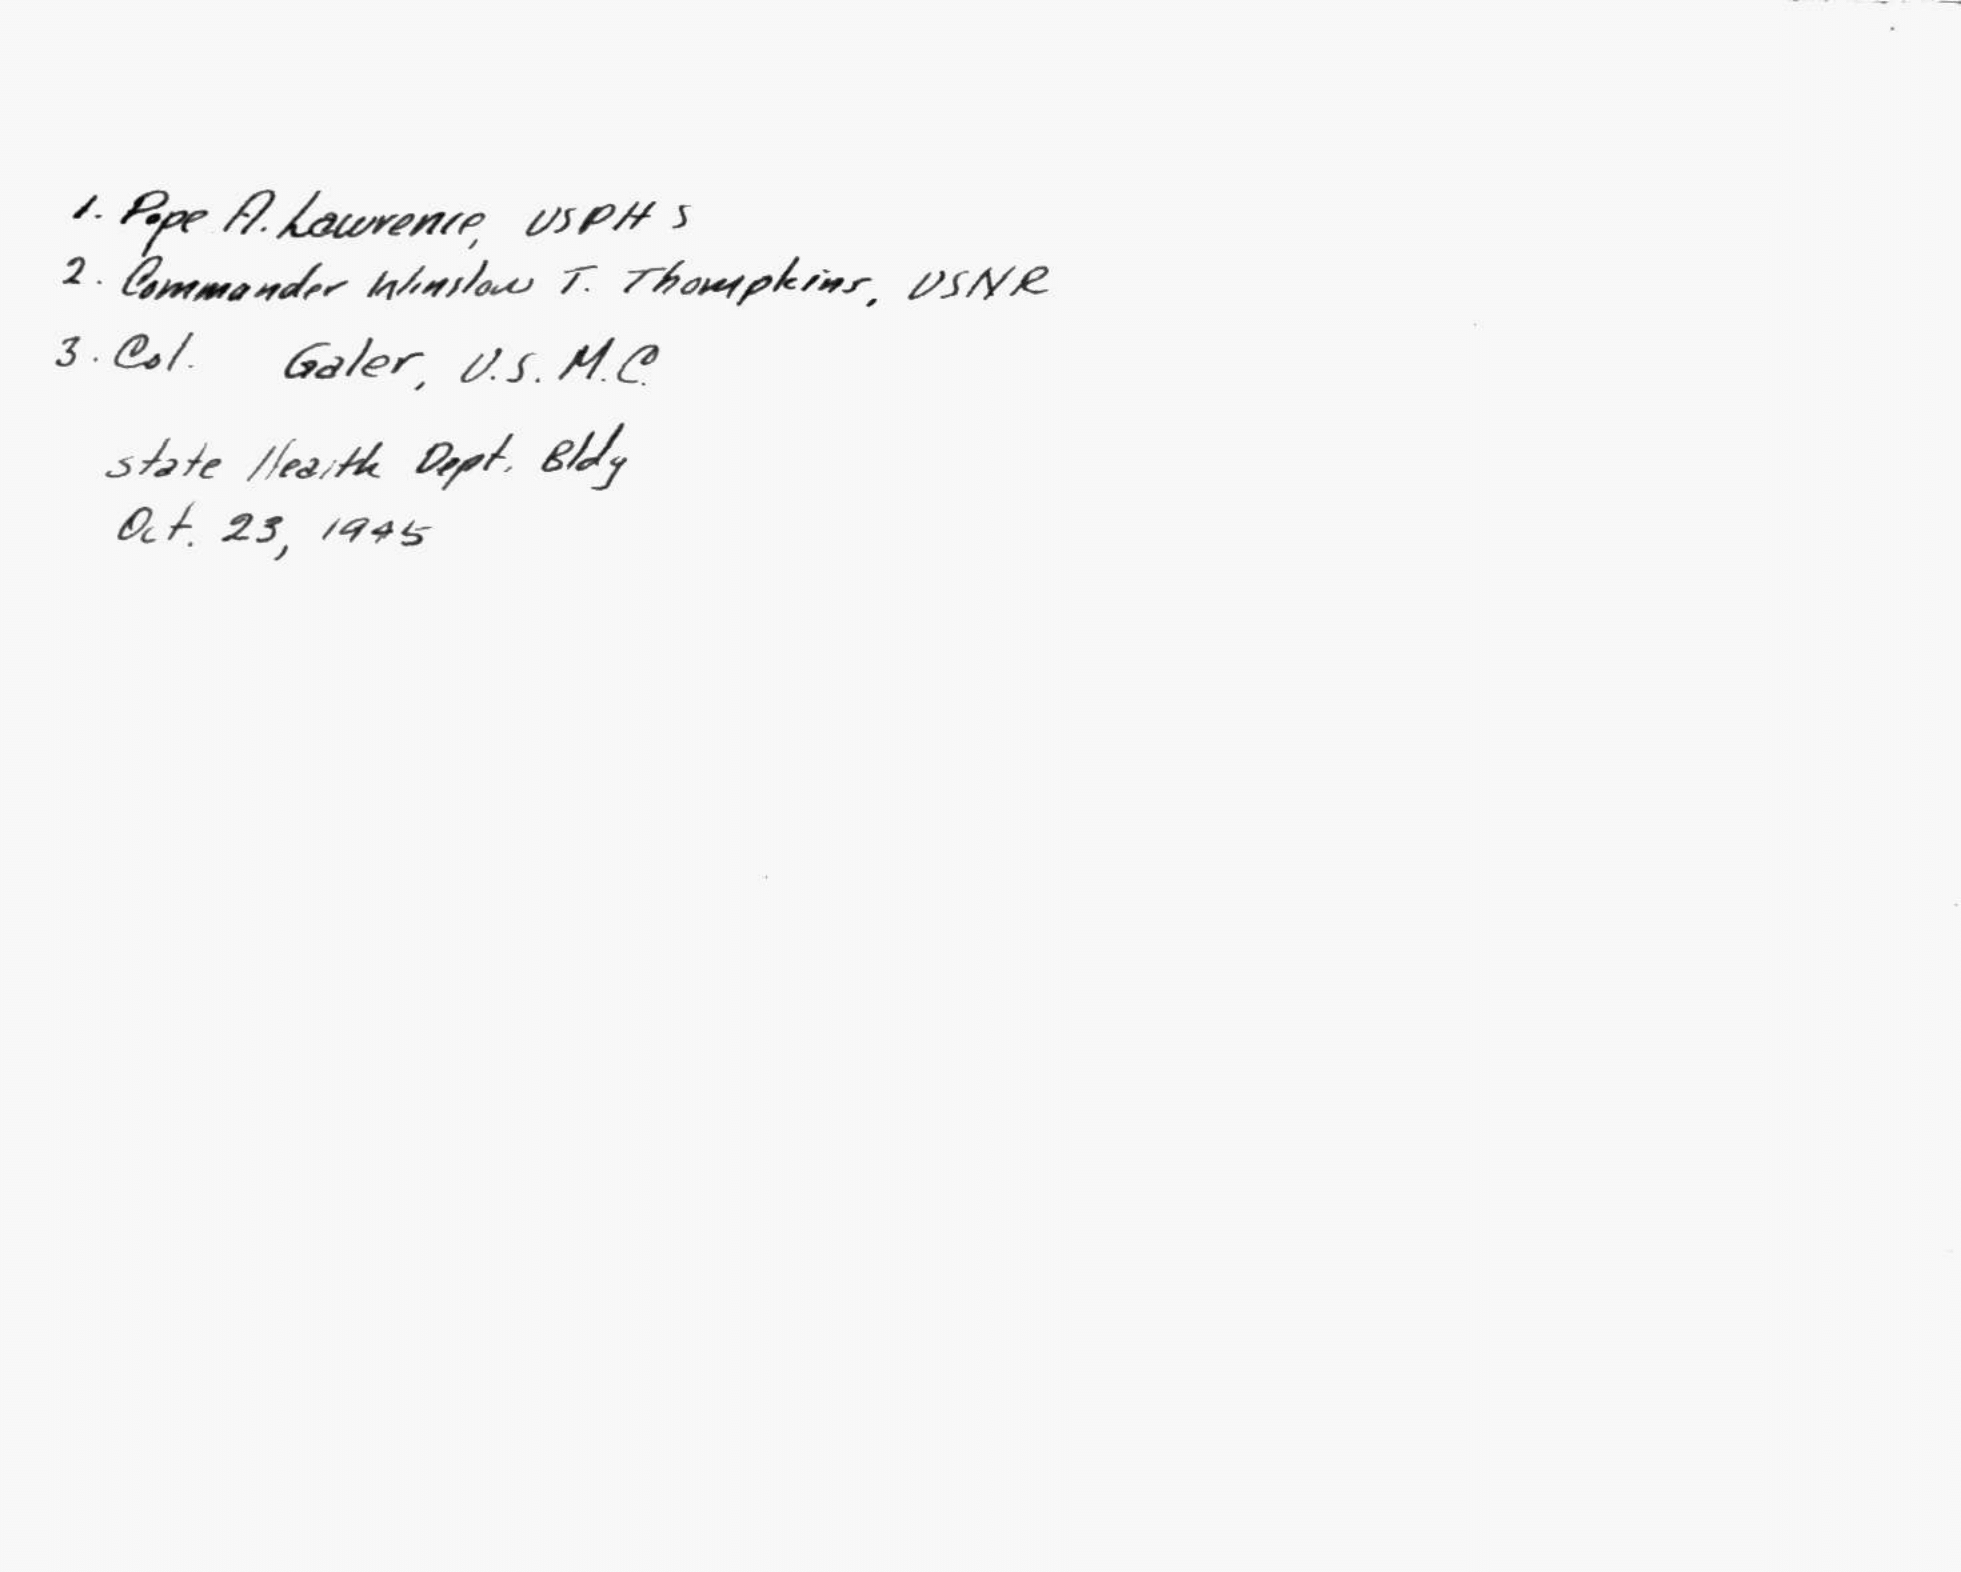 1. Pope A. Lawrence, USPHS
2. Commander Winslow T. Thompkins, USNR
3. Col. Galer, U.S.M.C.
State Health Dept. Bldg
Oct. 23, 1945